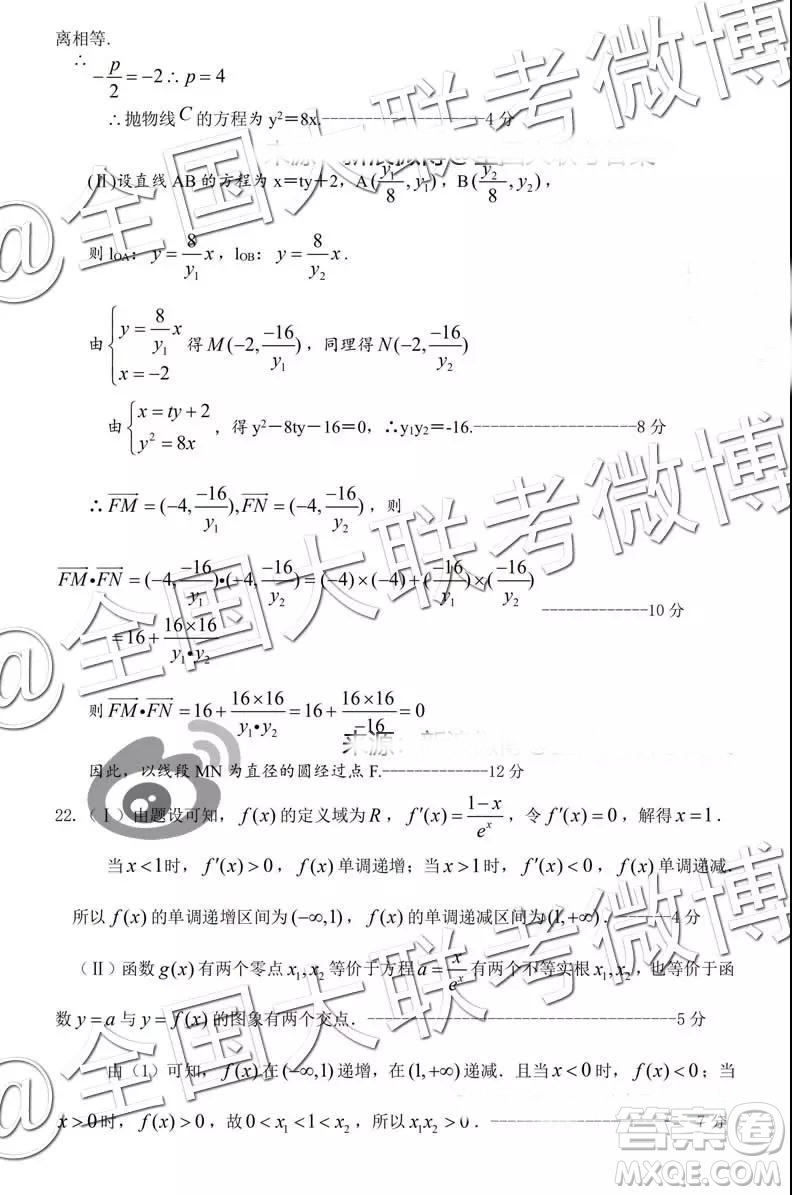 离相等.
∴ -p/2=-2∴p=4
∴抛物线C的方程为 y²=8x.-------------------4 分
(Ⅱ)设直线 AB 的方程为 x=ty+2，A(y₁/8,y₁)，B(y₂/8,y₂)，
则 l_OA：y=8/y₁ x，l_OB：y=8/y₂ x.
由{y=8/y₁ x x=-2 得M(-2,-16/y₁)，同理得N(-2,-16/y₂)
由{x=ty+2 y²=8x，得 y²-8ty-16=0，∴y₁y₂=-16.-------------------8 分
∴FM=(-4,-16/y₁),FN=(-4,-16/y₂)，则
FM•FN=(-4,-16/y₁)•(-4,-16/y₂)=(-4)×(-4)+(-16/y₁)×(-16/y₂)
=16+16×16/y₁•y₂ -------------10 分
则FM•FN=16+16×16/y₁•y₂=16+16×16/-16=0
因此，以线段 MN 为直径的圆经过点 F.-------------12 分
22.（Ⅰ）由题设可知，f(x)的定义域为R，f′(x)=1-x/eˣ，令f′(x)=0，解得x=1.
当x<1时，f′(x)>0，f(x)单调递增；当x>1时，f′(x)<0，f(x)单调递减.
所以f(x)的单调递增区间为(-∞,1)，f(x)的单调递减区间为(1,+∞).------4 分
（Ⅱ）函数g(x)有两个零点x₁,x₂等价于方程a=x/eˣ有两个不等实根x₁,x₂，也等价于函
数y=a与y=f(x)的图象有两个交点.------------------------------------5 分
由（1）可知，f(x)在(-∞,1)递增，在(1,+∞)递减.且当x<0时，f(x)<0；当
x>0时，f(x)>0，故0<x₁<1<x₂，所以x₁x₂>0.------------------------7 分
@全国大联考微博
@全国大联考微博
@全国大联考微博
答案卷
MXQE.COM